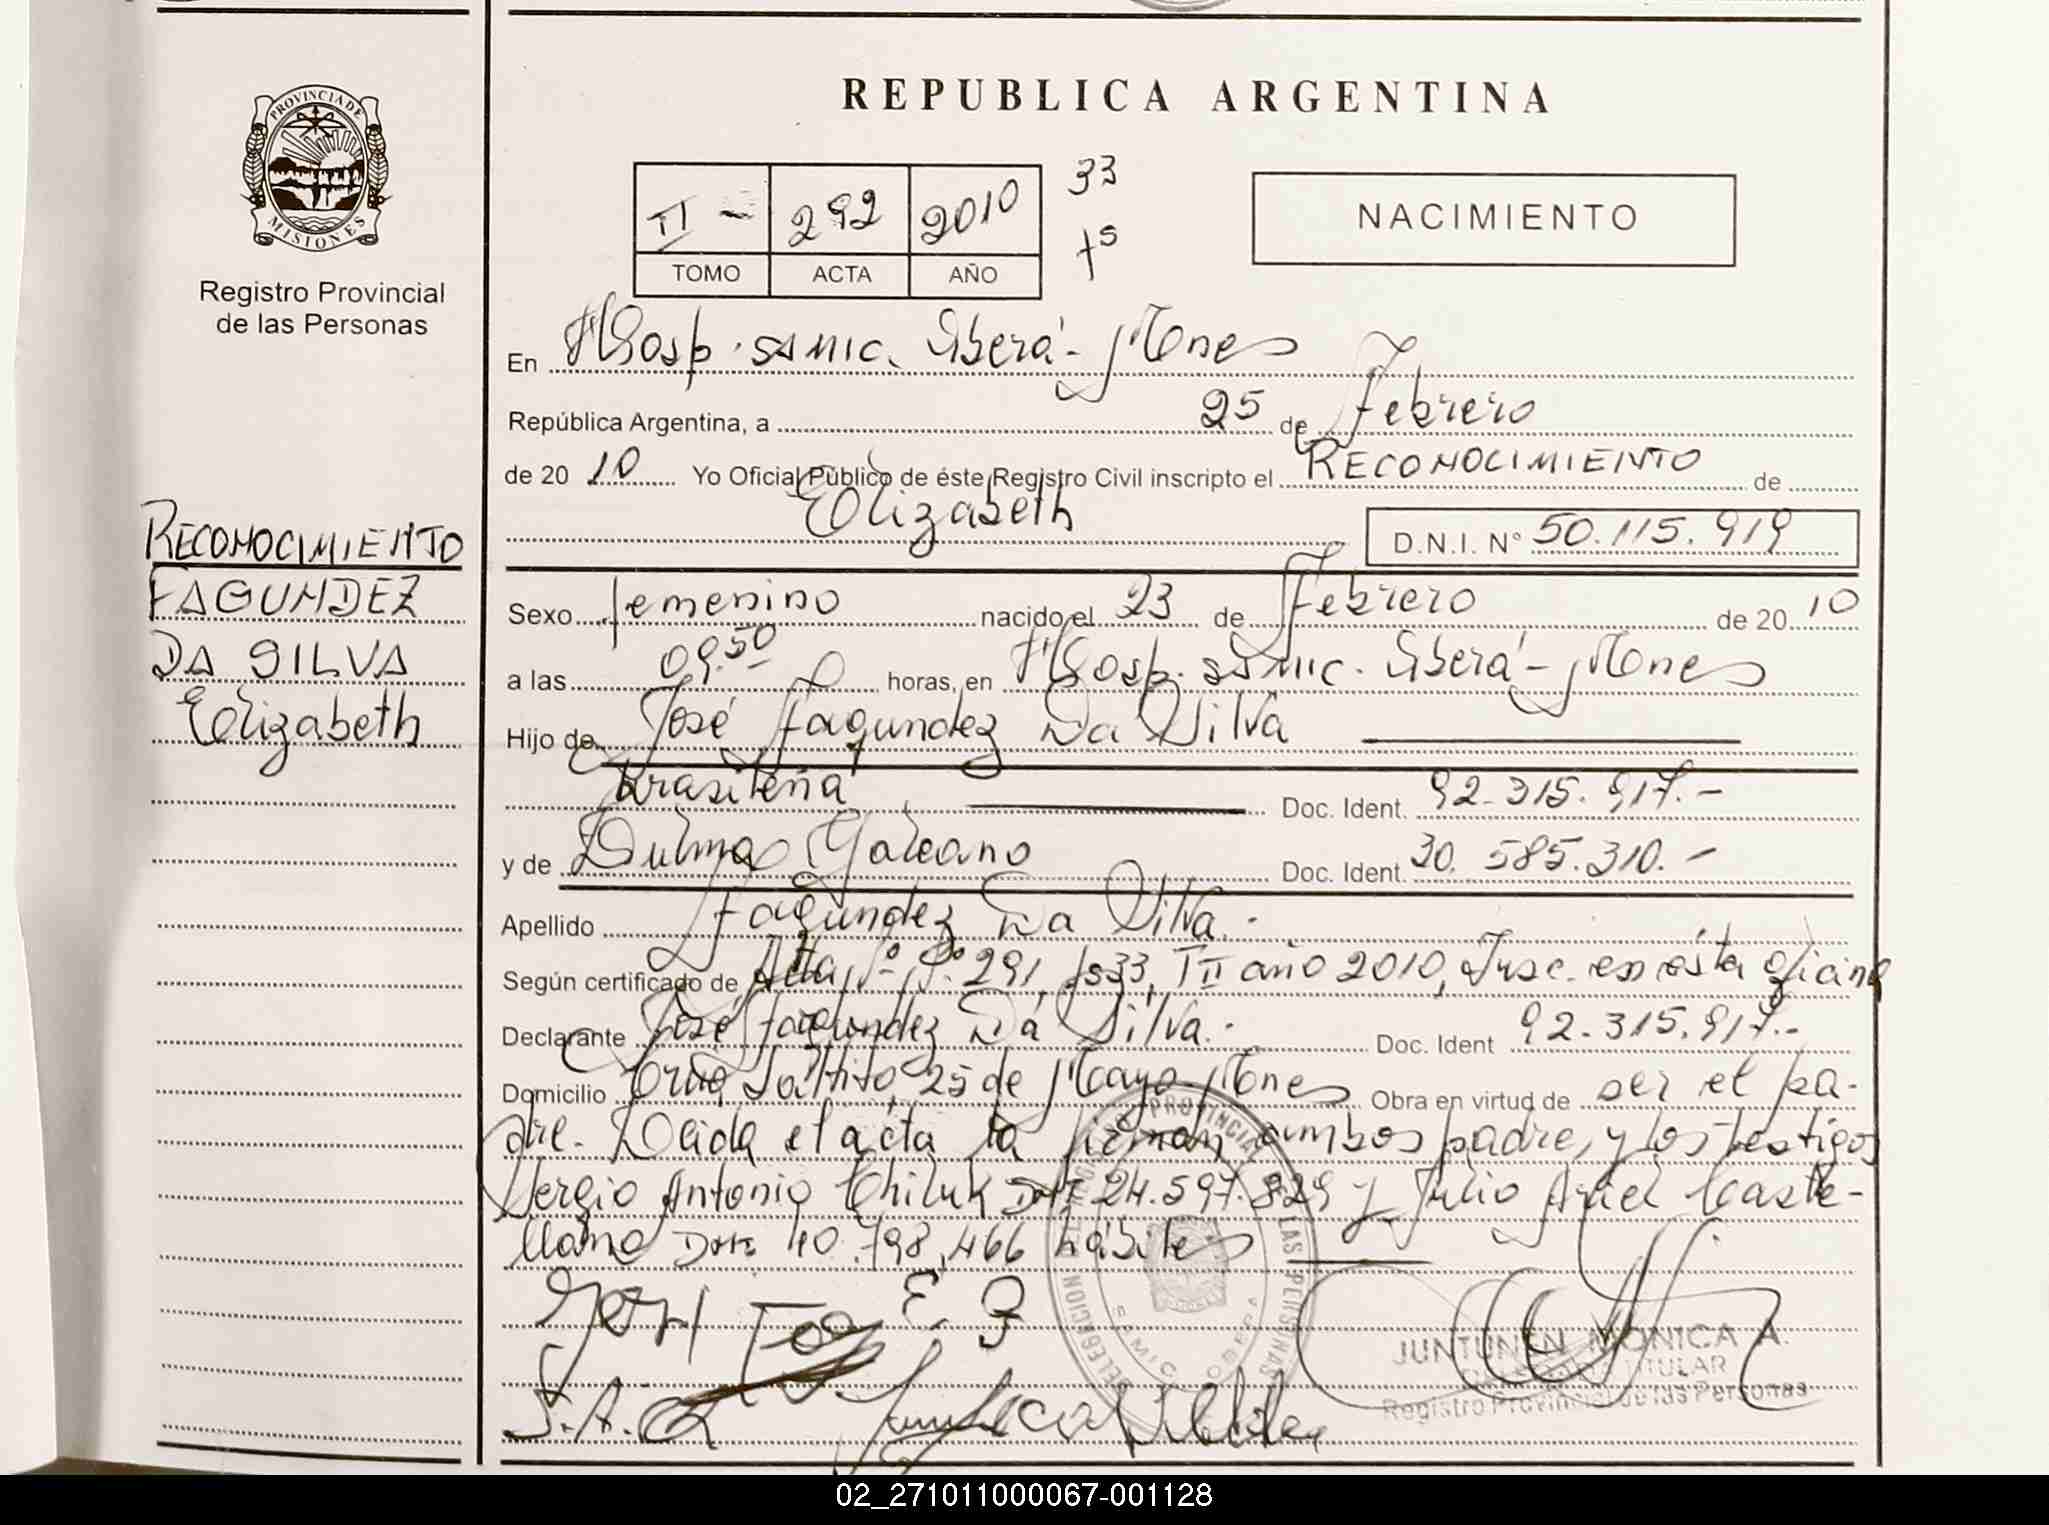 REPUBLICA ARGENTINA
PROVINCIA DE
MISIONES
Registro Provincial
de las Personas
II - 292 2010 33
TOMO ACTA AÑO
NACIMIENTO
En Hosp. SAMIC. Oberá - Mones
República Argentina, a 25 de Febrero
de 20 10 Yo Oficial Público de éste Registro Civil inscripto el RECONOCIMIENTO de
Elizabeth D.N.I. N° 50.115.919
RECONOCIMIENTO
FAGUNDEZ
DA SILVA
Elizabeth
Sexo femenino nacido el 23 de Febrero de 20 10
a las 09.50 horas, en Hosp. SAMIC. Oberá - Mones
Hijo de José Fagundez Da Silva
Brasileña Doc. Ident. 92.315.917.-
y de Dulma Galeano Doc. Ident. 30.585.310.-
Apellido Fagundez Da Silva.-
Según certificado de Acta N° 291, fs 33, T II año 2010, Insc. en esta oficina
Declarante José Fagundez Da Silva.- Doc. Ident 92.315.917.-
Domicilio Saltito, 25 de Mayo Mones Obra en virtud de ser el pa-
dre. Leida el acta la firman ambos padre, y los testigos
Sergio Antonio Chiluk 24.597.829 y Julio Ariel Caste-
llano 40.798.466 hábiles
S.A.
DELEGACION DEL REG. PROVINCIAL DE LAS PERSONAS
SAMIC OBERA
JUNTUNEN MONICA A.
TITULAR
Registro Provincial de las Personas
02_271011000067-001128